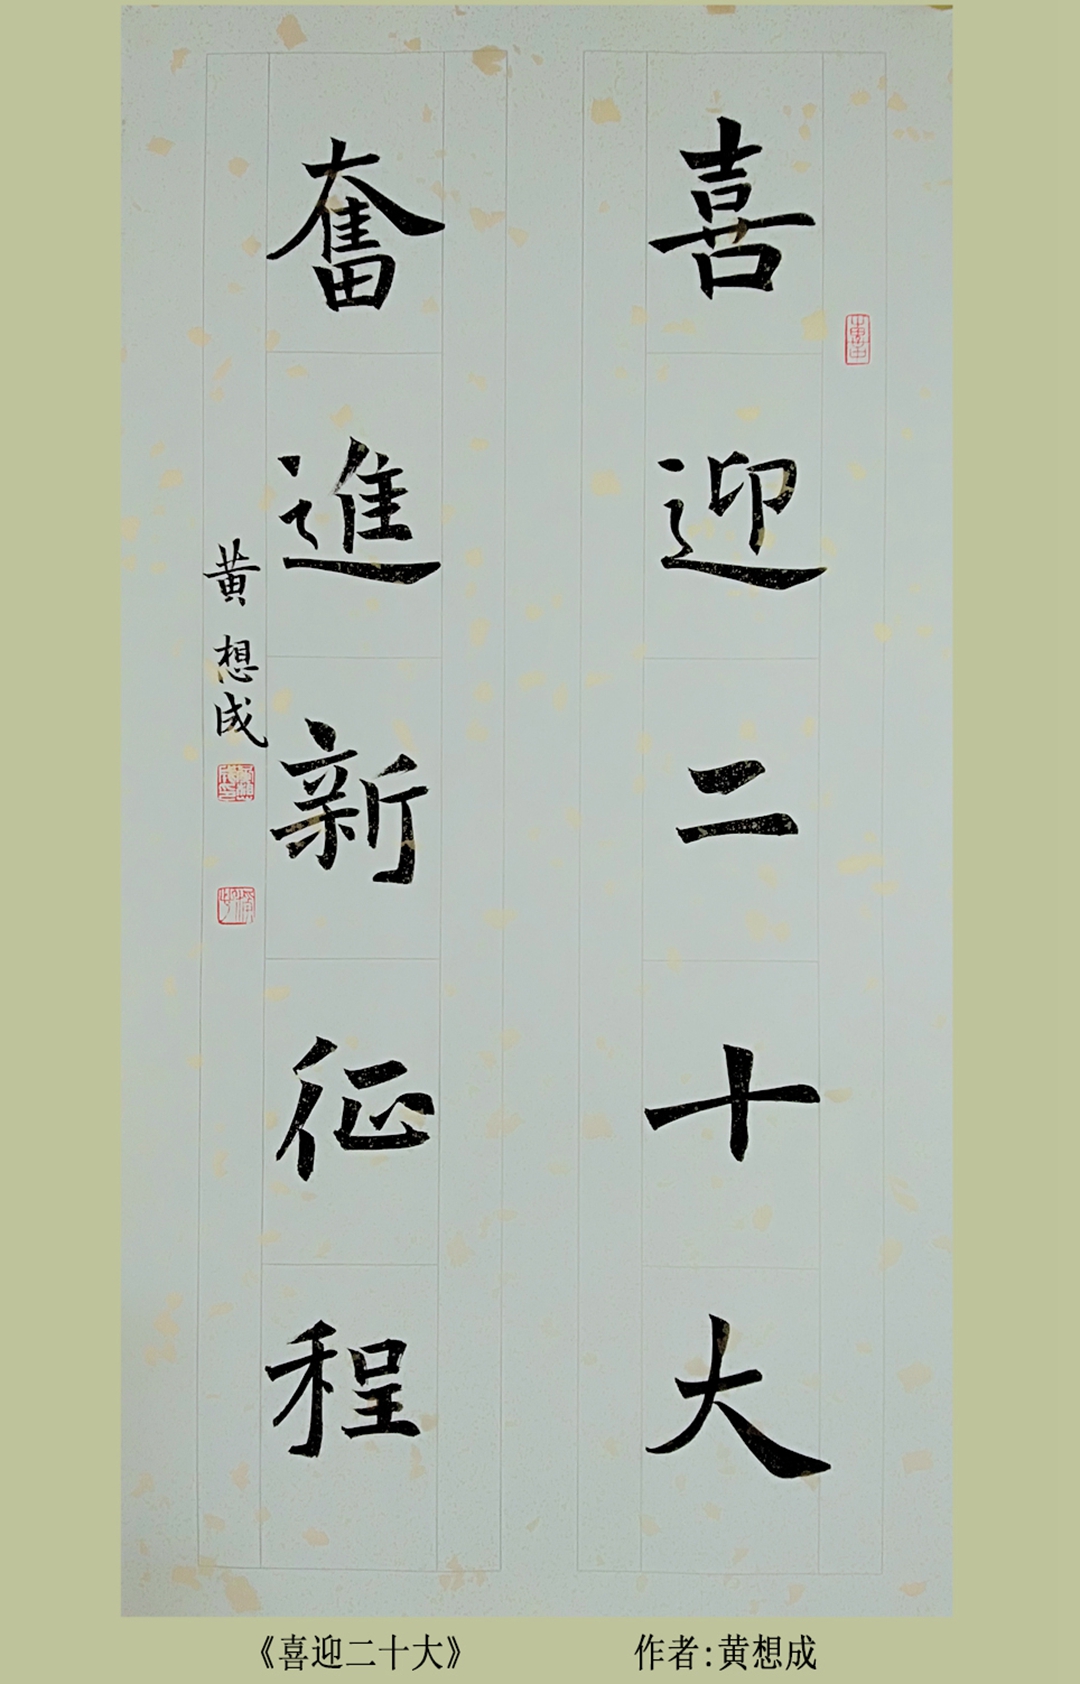 喜迎二十大
奮進新征程
黄想成
《喜迎二十大》 作者:黄想成